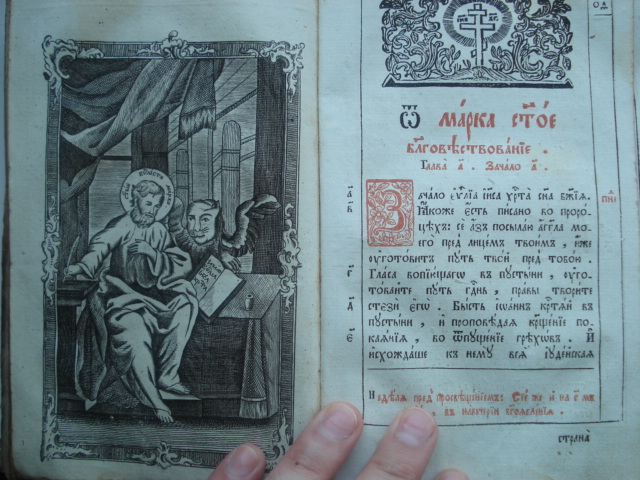 Ѿ ма́рка ст҃о́е
бл҃говѣствова́нїе .
Глава̀ а҃ . Зача́ло а҃ .
Зача́ло є҆ѵⷢ҇лїа і҆и҃са хрⷭ҇та̀ сн҃а бж҃їѧ .
Ꙗ҆́коже є҆́сть пи́сано во проро́-
цѣхъ : сѐ а҆́зъ посыла́ю а҆́гг҃ла мо-
его̀ пред̾ лице́мъ твои́мъ , и҆́же
ᲂу҆гото́витъ пꙋ́ть тво́й пред̾ тобо́ю .
Гла́съ вопїю́щагѡ въ пꙋсты́ни , ᲂу҆го-
то́вайте пꙋ́ть гдⷭ҇нь , пра́вы твори́те
стєзѝ є҆гѡ̀ . Бы́сть і҆ѡа́ннъ крⷭ҇тѧ́й въ
пꙋсты́ни , и҆ проповѣ́даѧ крⷳ҇ще́нїе по-
каѧ́нїѧ , во ѿпꙋще́нїе грѣхѡ́въ . И҆
и҆схожда́ше къ немꙋ̀ всѧ̀ і҆ꙋде́йскаѧ
Недѣ́лѧ пред̾ просвѣще́нїемъ
въ навече́рїи бг҃оѧвле́нїѧ .
страна̀